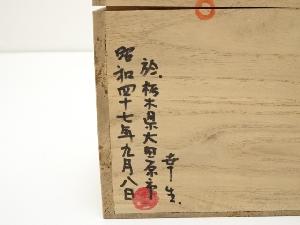 於.栃木県大田原市
昭和四十七年九月八日
幸生.